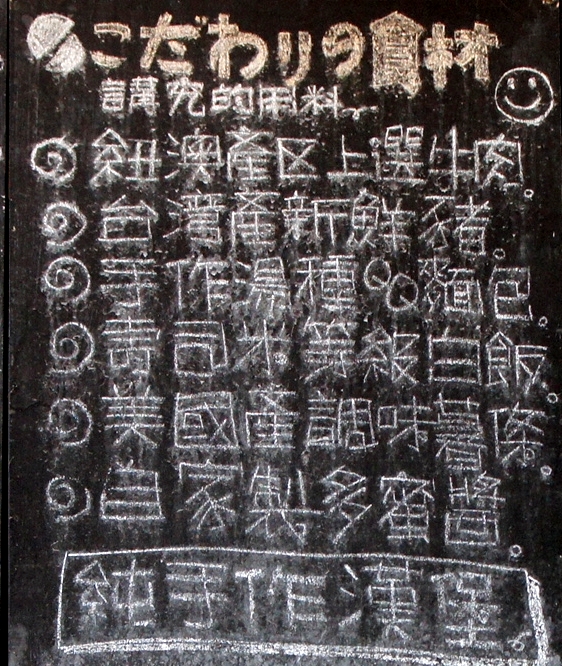 こだわりの食材
講究的用料~
紐澳產区上選牛肉。
台灣產新鮮豬。
手作湯種QQ麵包。
壽司米等級白飯。
美國產調味薯條。
自家製多蜜醬。
純手作漢堡